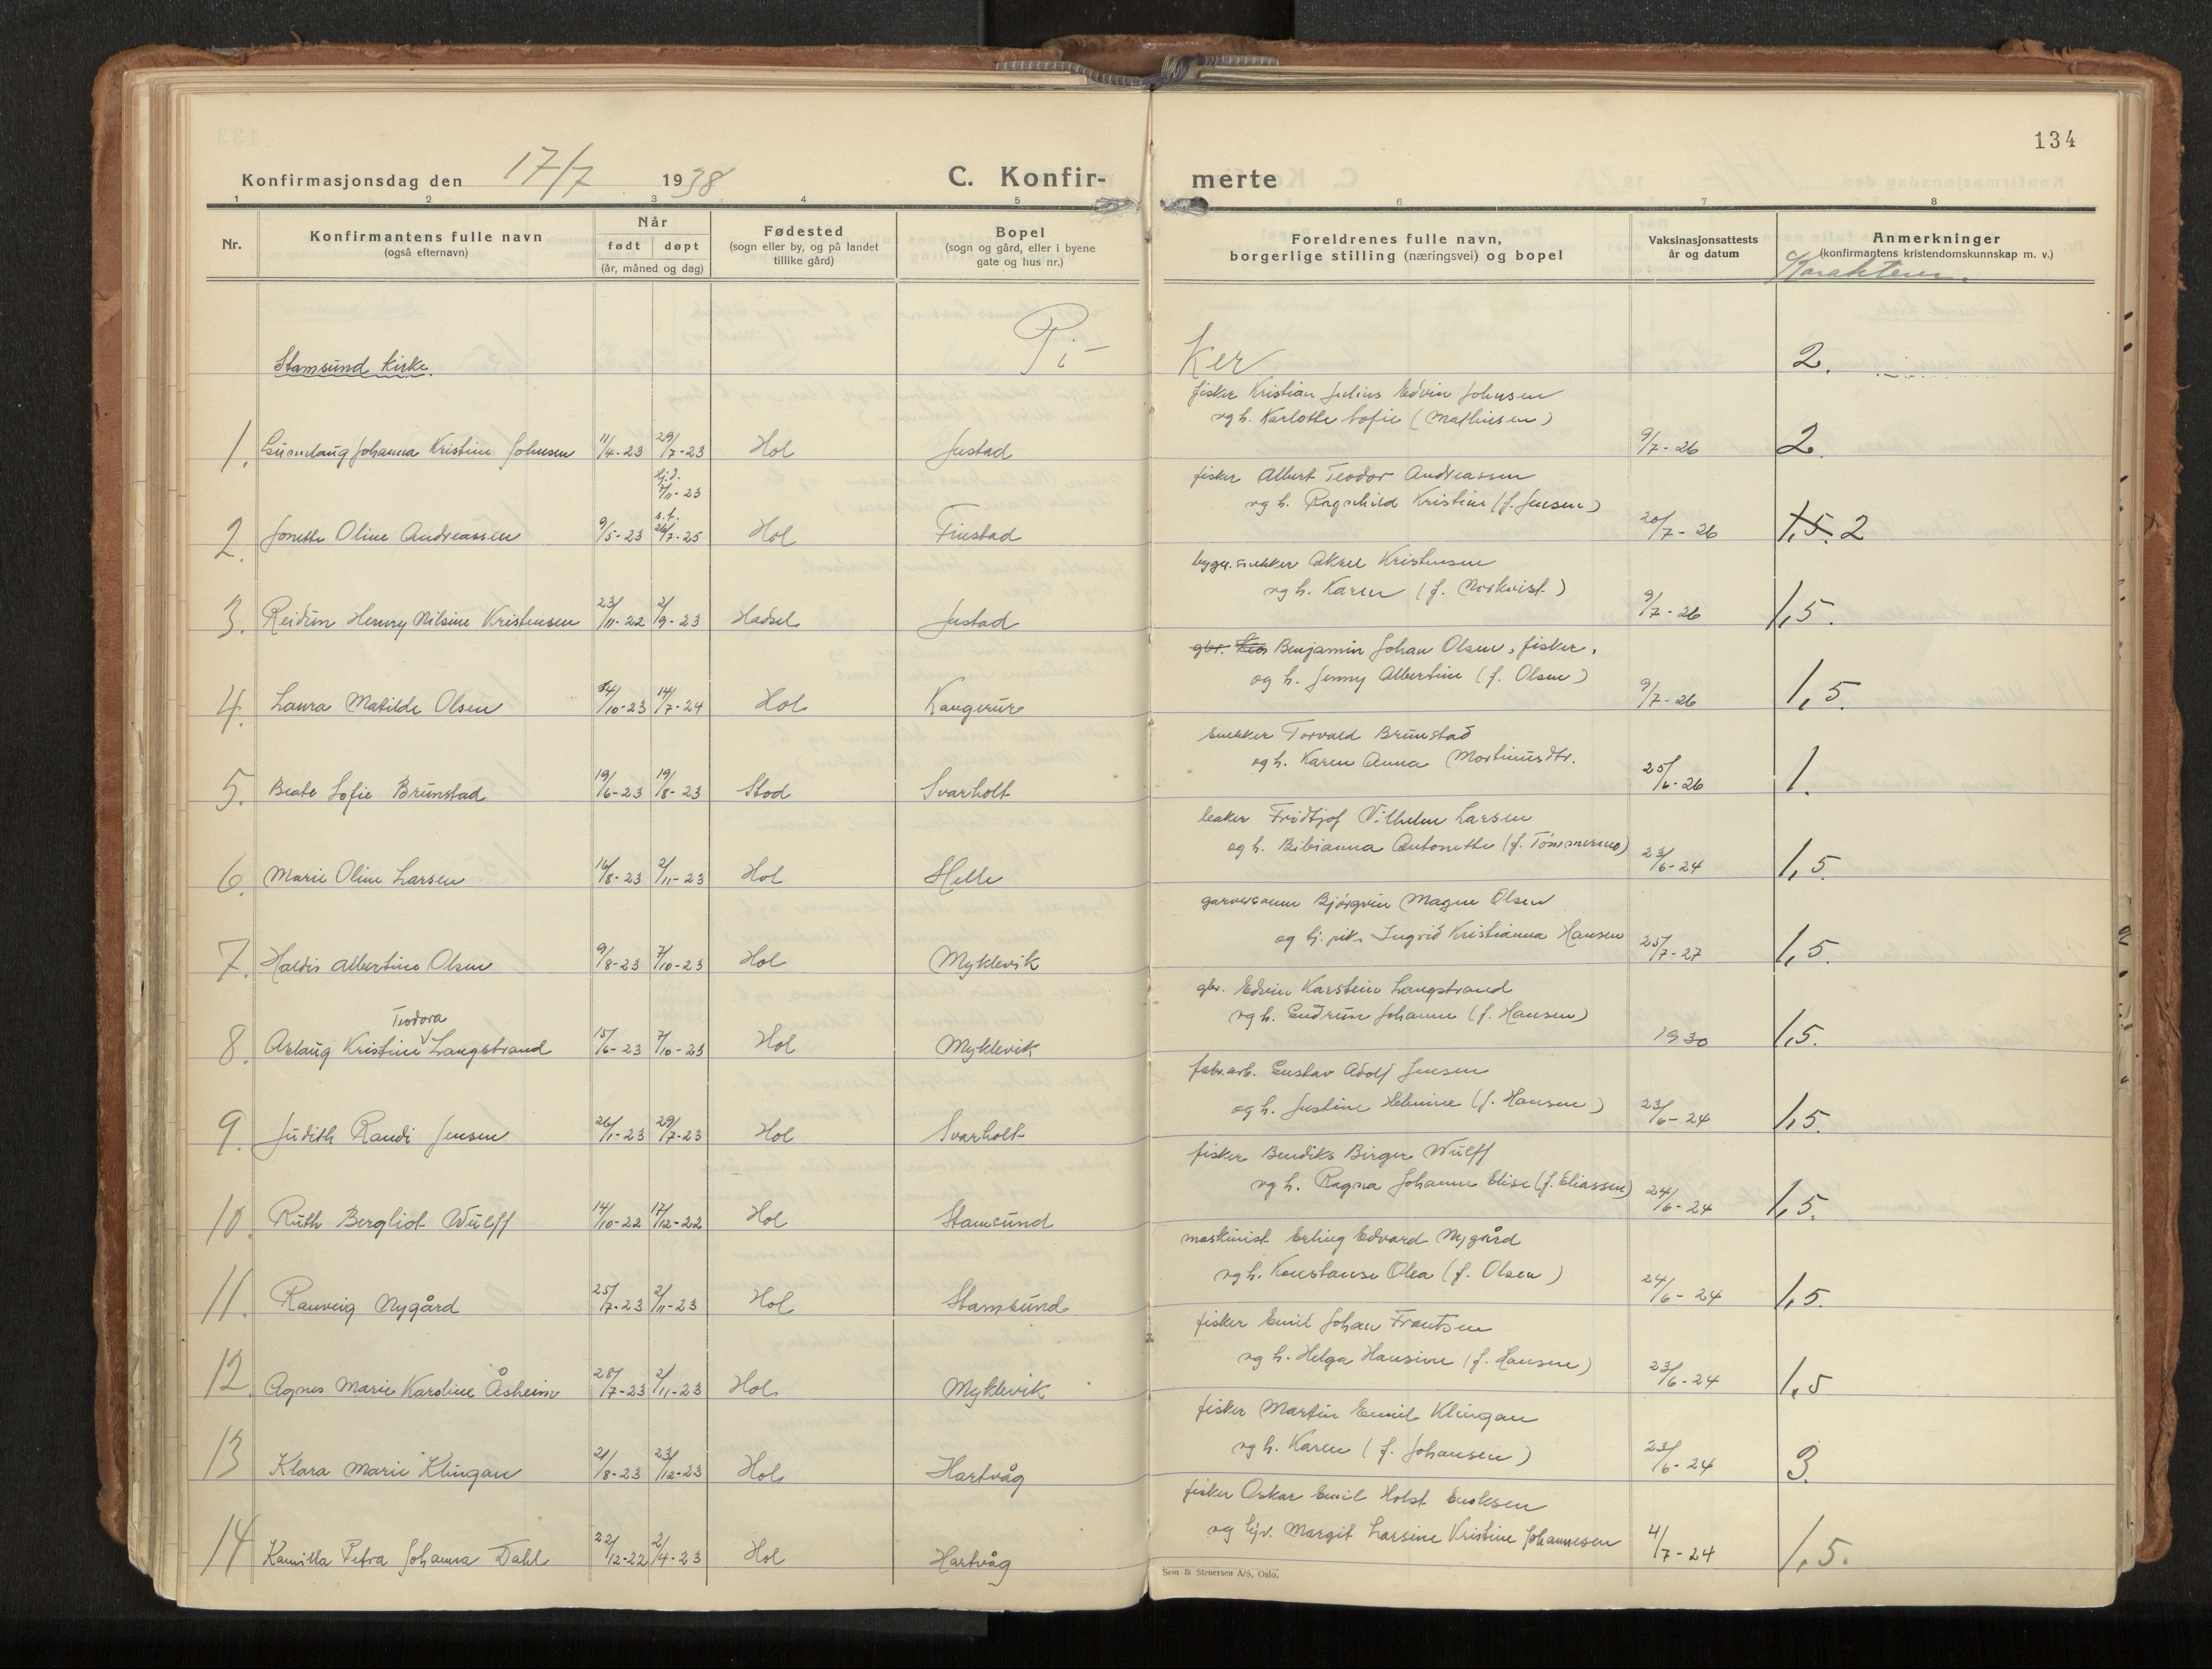 134
Konfirmasjonsdag den 17/7 1938. C. Konfir- merte
1 2 3 4 5 6 7 8
Nr. Konfirmantens fulle navn (også efternavn) Når født døpt (år, måned og dag) Fødested (sogn eller by, og på landet tillike gård) Bopel (sogn og gård, eller i byene gate og hus nr.) Foreldrenes fulle navn, borgerlige stilling (næringsvei) og bopel Vaksinasjonsattests år og datum Anmerkninger (konfirmantens kristendomskunnskap m. v.)
Karakterer.
Stamsund kirke. Pi- Ker 2.
fisker Kristian Julius Edvin Johnsen
og h. Karlotte Sofie (Mathisen)
1. Gunnlaug Johanna Kristine Johnsen 11/4-23 29/7-23 Hol Justad 9/7-26 2.
hj.d. 7/11-23
fisker Albert Teodor Andreassen
og h. Ragnhild Kristine (f. Jensen)
2. Jonette Oline Andreassen 9/5-23 s.t. 26/7-25 Hol Finstad 20/7-26 1,5. 2
bygn.snekker Aksel Kristensen
og h. Karen (f. Norkvist.)
3. Reidun Henny Nilsine Kristensen 23/11-22 2/9-23 Hadsel Justad 9/7-26 1,5.
gbr. Benjamin Johan Olsen, fisker,
og h. Jenny Albertine (f. Olsen)
4. Laura Matilde Olsen 14/10-23 14/7-24 Hol Kangerur 9/7-26 1,5.
snekker Torvald Brunstad
og h. Karen Anna Mortinusdtr.
5. Beate Sofie Brunstad 19/6-23 19/8-23 Stod Svarholt 25/6-26 1.
Fridtjof Vilhelm Larsen
og h. Bibianna Antonette (f. Tømmermo)
6. Marie Oline Larsen 16/8-23 2/11-23 Hol Helle 23/6-24 1,5.
garversvenn Bjørgvin Magne Olsen
og tj. pike Ingrid Kristianna Hansen
7. Haldis Albertine Olsen 9/8-23 7/10-23 Hol Myklevik 25/7-27 1,5.
gbr. Edvin Karstein Langstrand
og h. Gudrun Johanne (f. Hansen)
Teodora
8. Aslaug Kristine Langstrand 15/6-23 7/10-23 Hol Myklevik 1930 1,5.
fabr.arb. Gustav Adolf Jensen
og h. Justine Helmine (f. Hansen)
9. Judith Randi Jensen 26/1-23 29/7-23 Hol Svarholt 23/6-24 1,5.
fisker Bendiks Birger Wulff
og h. Ragna Johanne Elise (f. Eliassen)
10. Ruth Bergliot Wulff 14/10-22 17/12-22 Hol Stamsund 24/6-24 1,5.
maskinist Erling Edvard Nygård
og h. Konstanse Olea (f. Olsen)
11. Ranveig Nygård 25/7-23 2/11-23 Hol Stamsund 24/6-24 1,5.
fisker Emil Johan Frantsen
og h. Helga Hansine (f. Hansen)
12. Agnes Marie Karoline Åsheim 28/7-23 2/11-23 Hol Myklevik 23/6-24 1,5
fisker Martin Emil Klingan
og h. Karen (f. Johansen)
13 Klara Marie Klingan 21/8-23 23/12-23 Hol Hartvåg 23/6-24 3.
fisker Oskar Emil Holst Enoksen
og hjv. Margit Larsine Kristine Johannesen
14 Kamilla Petra Johanna Dahl 22/12-22 2/4-23 Hol Hartvåg 4/7-24 1,5.
Sem & Stenersen A/S, Oslo.